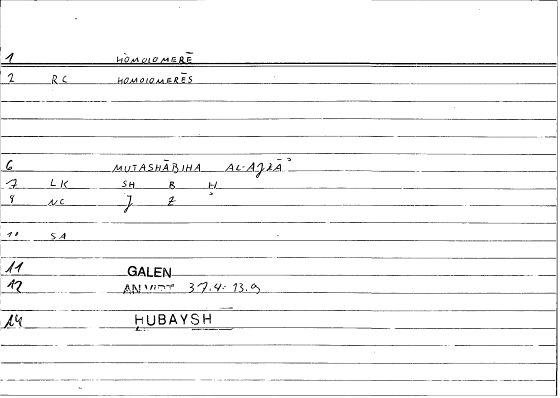 1 HOMOIOMERĒ
2 RC HOMOIOMERĒS
6 MUTASHĀBIHA AL-AJZĀʾ
7 LK SH B H
8 NC J Z ʾ
10 SA
11 GALEN
12 AN VIRT 37.4: 13.9
14 HUBAYSH